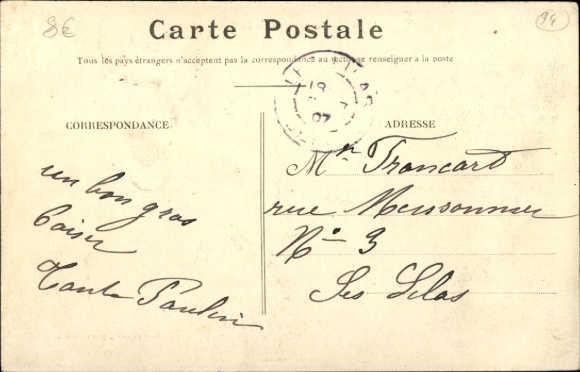 8€
94
Carte Postale
Tous les pays étrangers n'acceptent pas la correspondance au recto se renseigner a la poste
CORRESPONDANCE
ADRESSE
un bon gros
baiser
Tante Pauline
Mr Troncart
rue Meissonnier
N° 3
Les Lilas